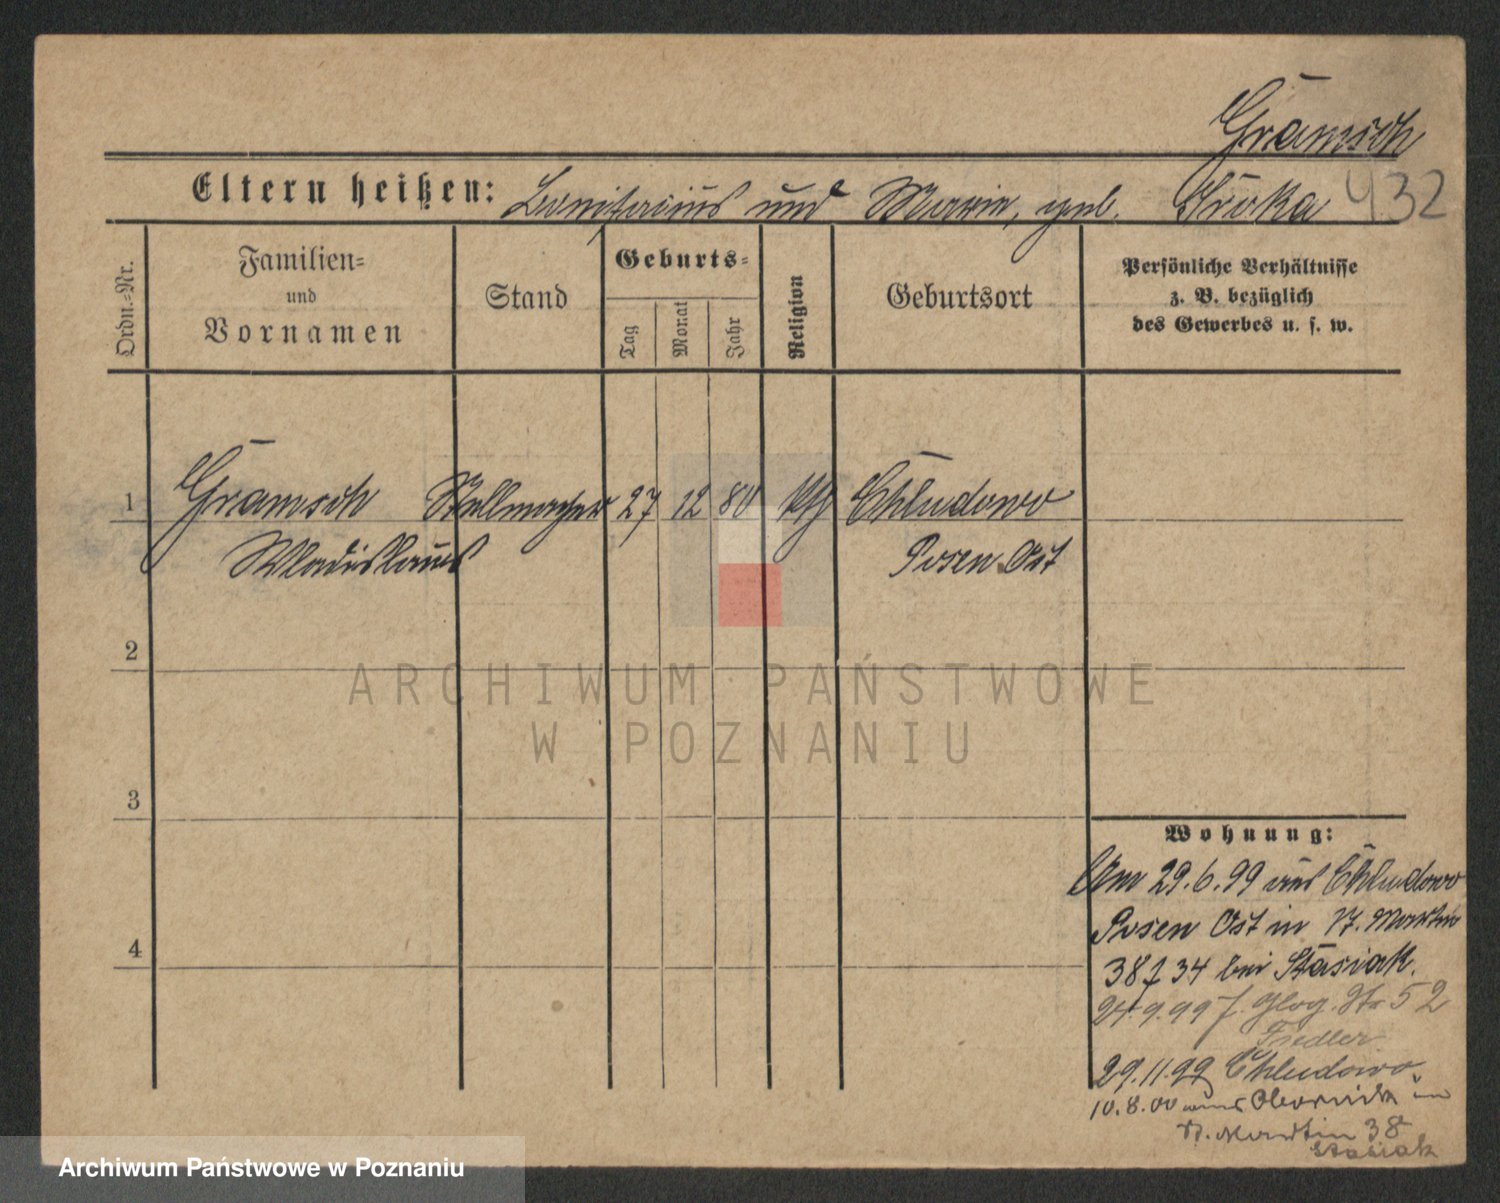 Gramsch
Eltern heißen: Bonifacius und Marie, geb. Sroka 432
Ordn.=Nr.
Familien= und Vornamen
Stand
Geburts=
Tag
Monat
Jahr
Religion
Geburtsort
Persönliche Verhältnisse
z. B. bezüglich
des Gewerbes u. s. w.
1 Gramsch Stellmacher 27 12 80 kth Chludowo
Wladislaus Posen Ost
2
3
4
ARCHIWUM PAŃSTWOWE
W POZNANIU
Wohnung:
Am 29.6.99 aus Chludowo
Posen Ost in St. Martin
38 34 bei Stasiak.
24.9.99 Glog. Str 52
Fiedler
29.11.99 Chludowo
10.8.00 aus Obornik in
St. Martin 38
Stasiak
Archiwum Państwowe w Poznaniu